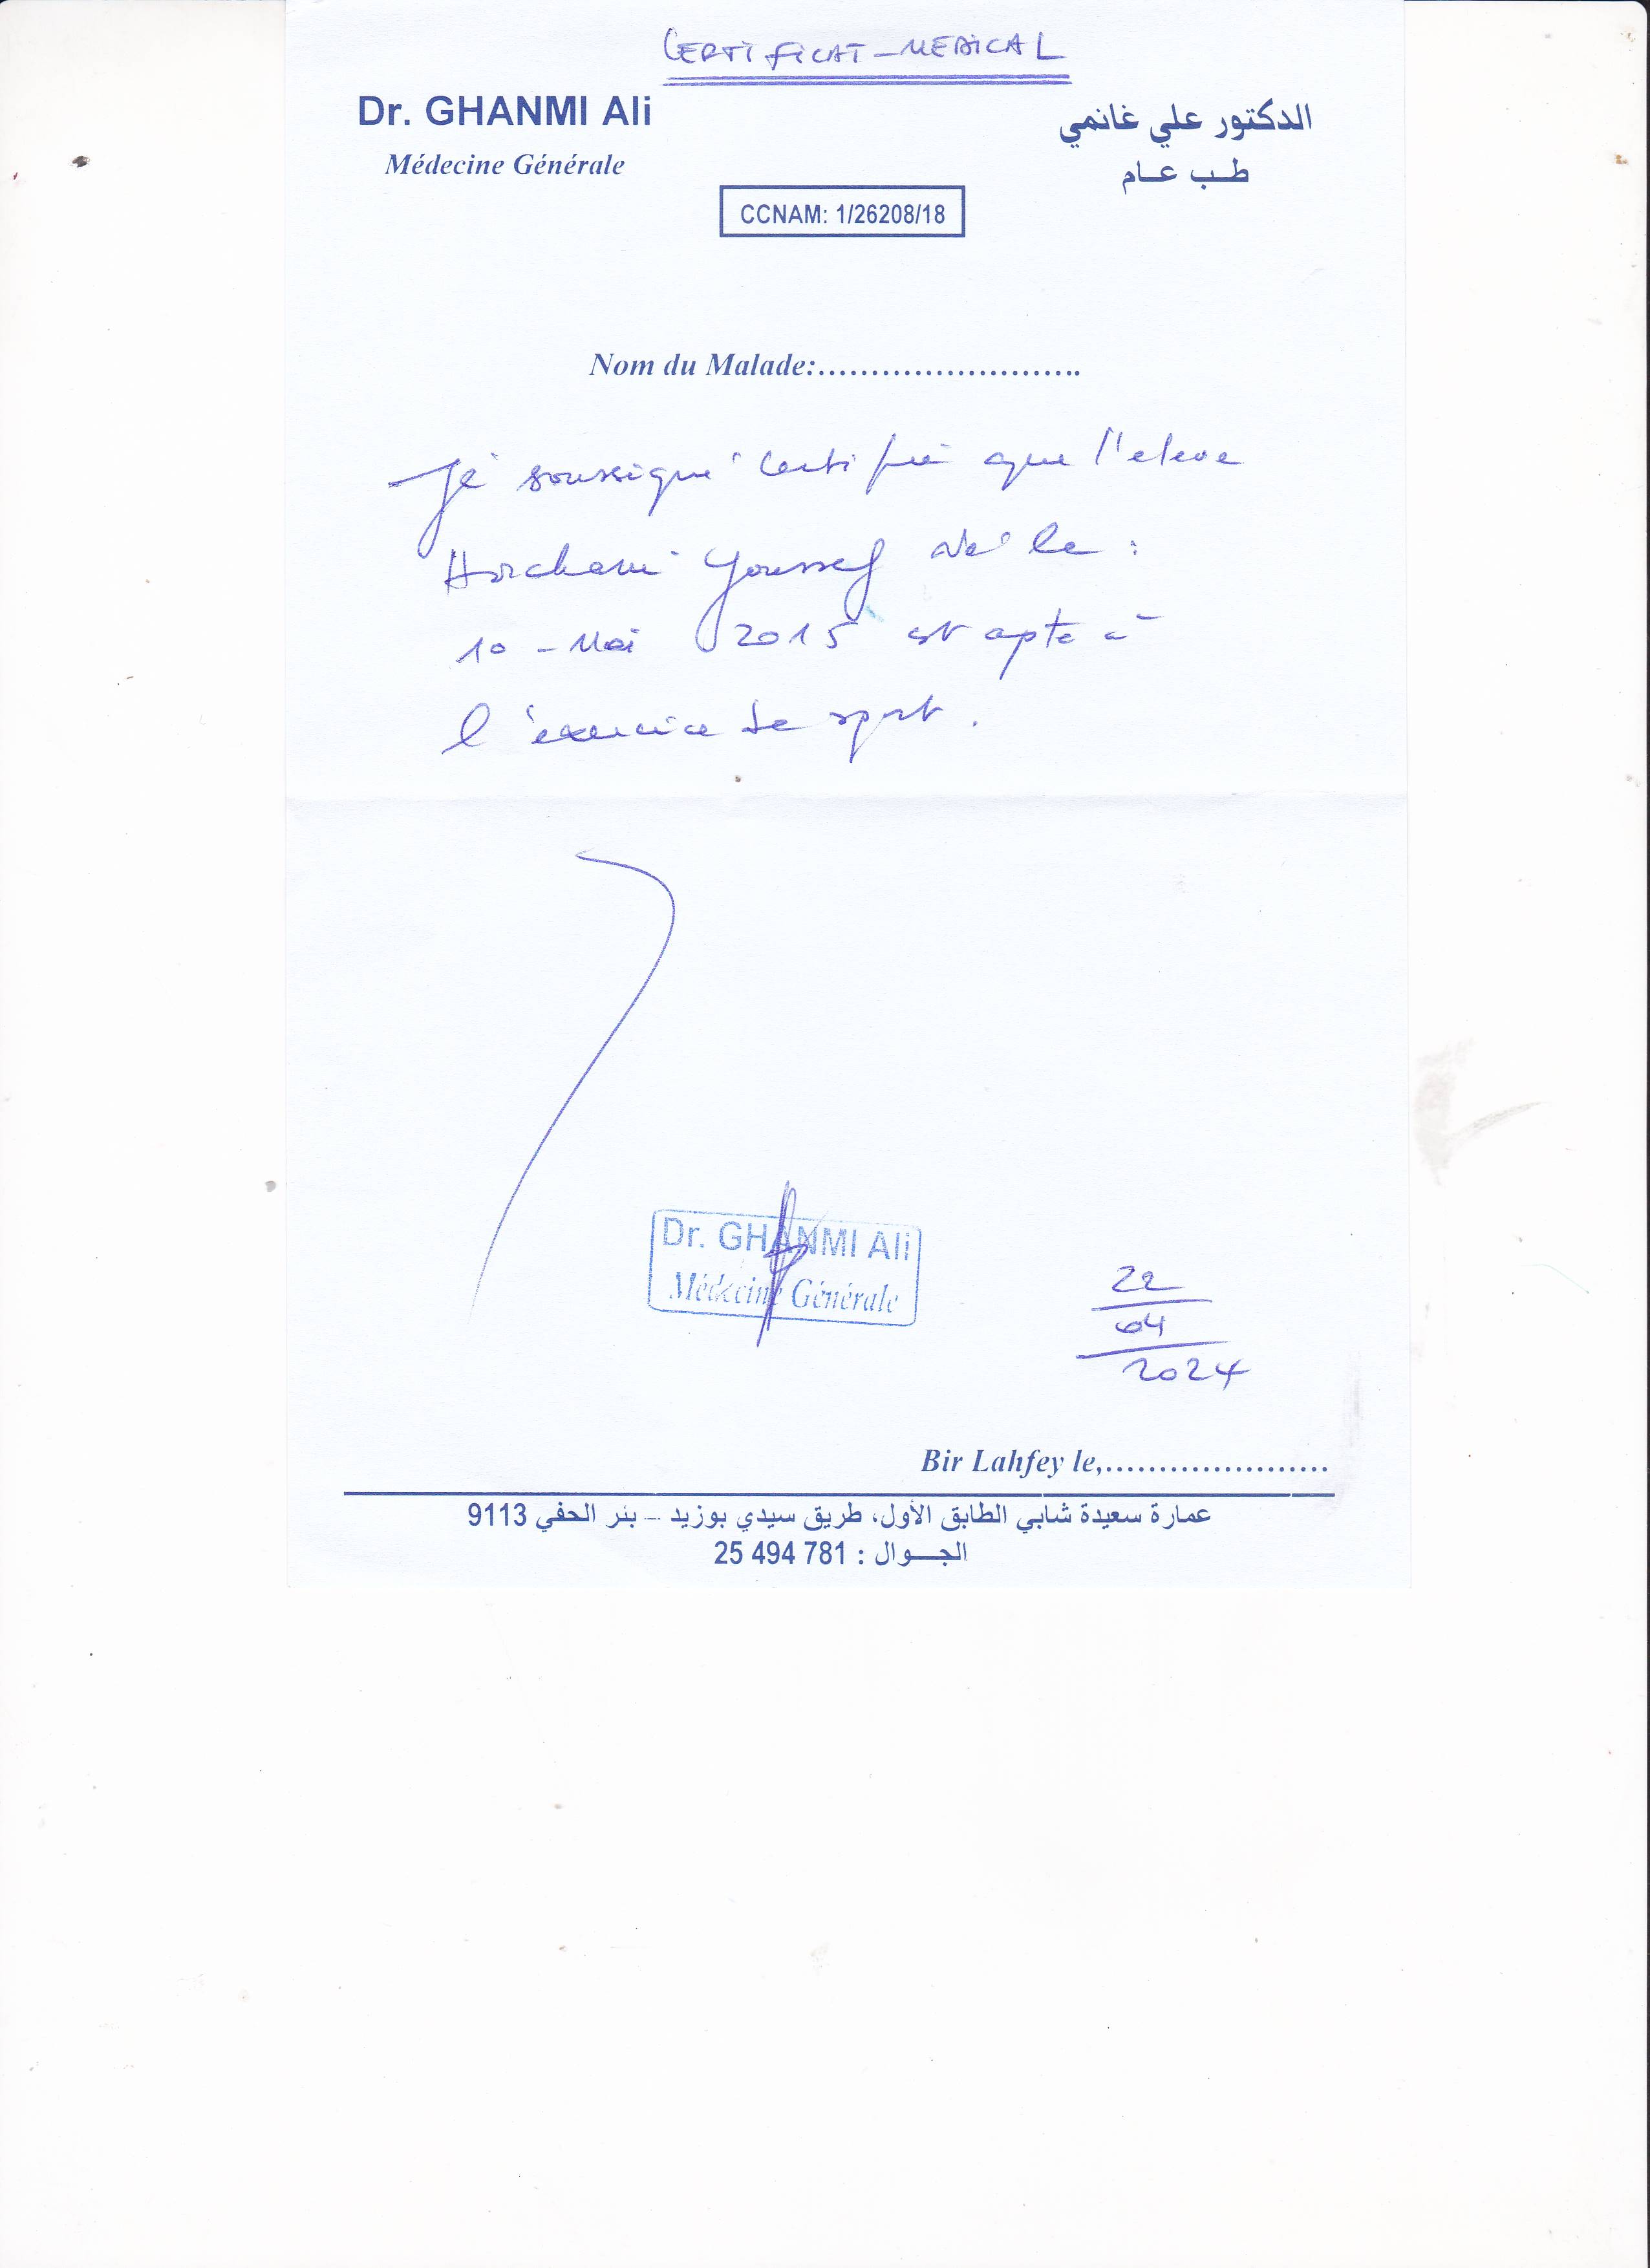 CERTIFICAT-MEDICAL
Dr. GHANMI Ali
الدكتور علي غانمي
Médecine Générale
طب عام
CCNAM: 1/26208/18
Nom du Malade:..........................
Je soussigné certifie que l'eleve
Horchani Youssef né le :
10 - Mai 2015 est apte à
l'exercice de sport.
Dr. GHANMI Ali
Médecine Générale
22
04
2024
Bir Lahfey le,......................
عمارة سعيدة شابي الطابق الأول، طريق سيدي بوزيد – بئر الحفي 9113
الجوال : 25 494 781